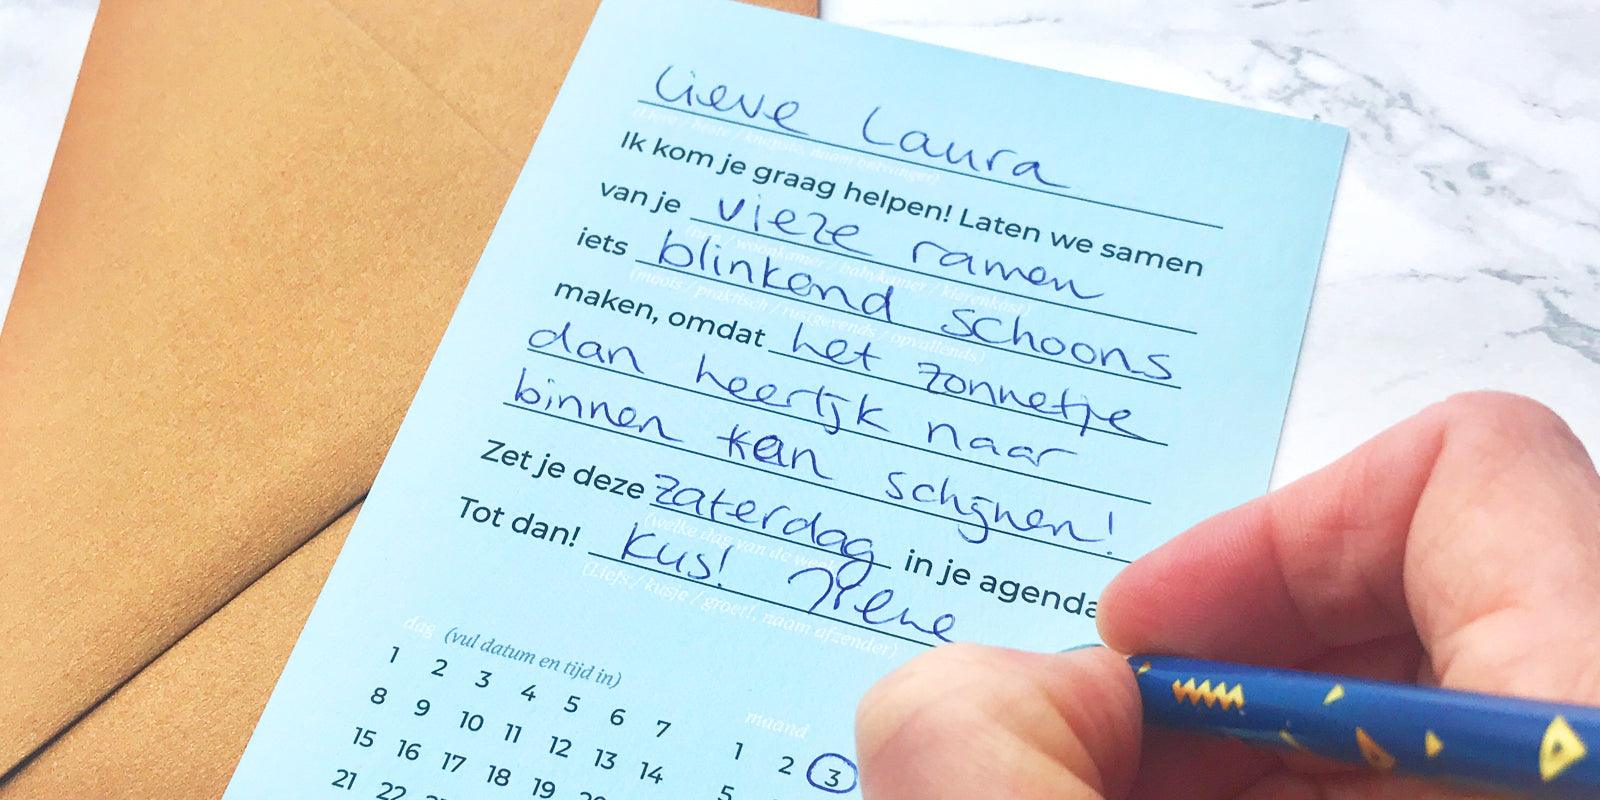 Lieve Laura
(Lieve / beste / knapste, naam ontvanger)
Ik kom je graag helpen! Laten we samen
van je vieze ramen
(huis / woonkamer / babykamer / klerenkast)
iets blinkend schoons
(moois / praktisch / rustgevends / opvallends)
maken, omdat het zonnetje
dan heerlijk naar
binnen kan schijnen!
Zet je deze zaterdag in je agenda
(welke dag van de week)
Tot dan! Kus! Irene
(Liefs / kusje / groet!, naam afzender)
dag (vul datum en tijd in)
maand
1 2 3 4 5 6 7
1 2 3
8 9 10 11 12 13 14
5
15 16 17 18 19
21 22